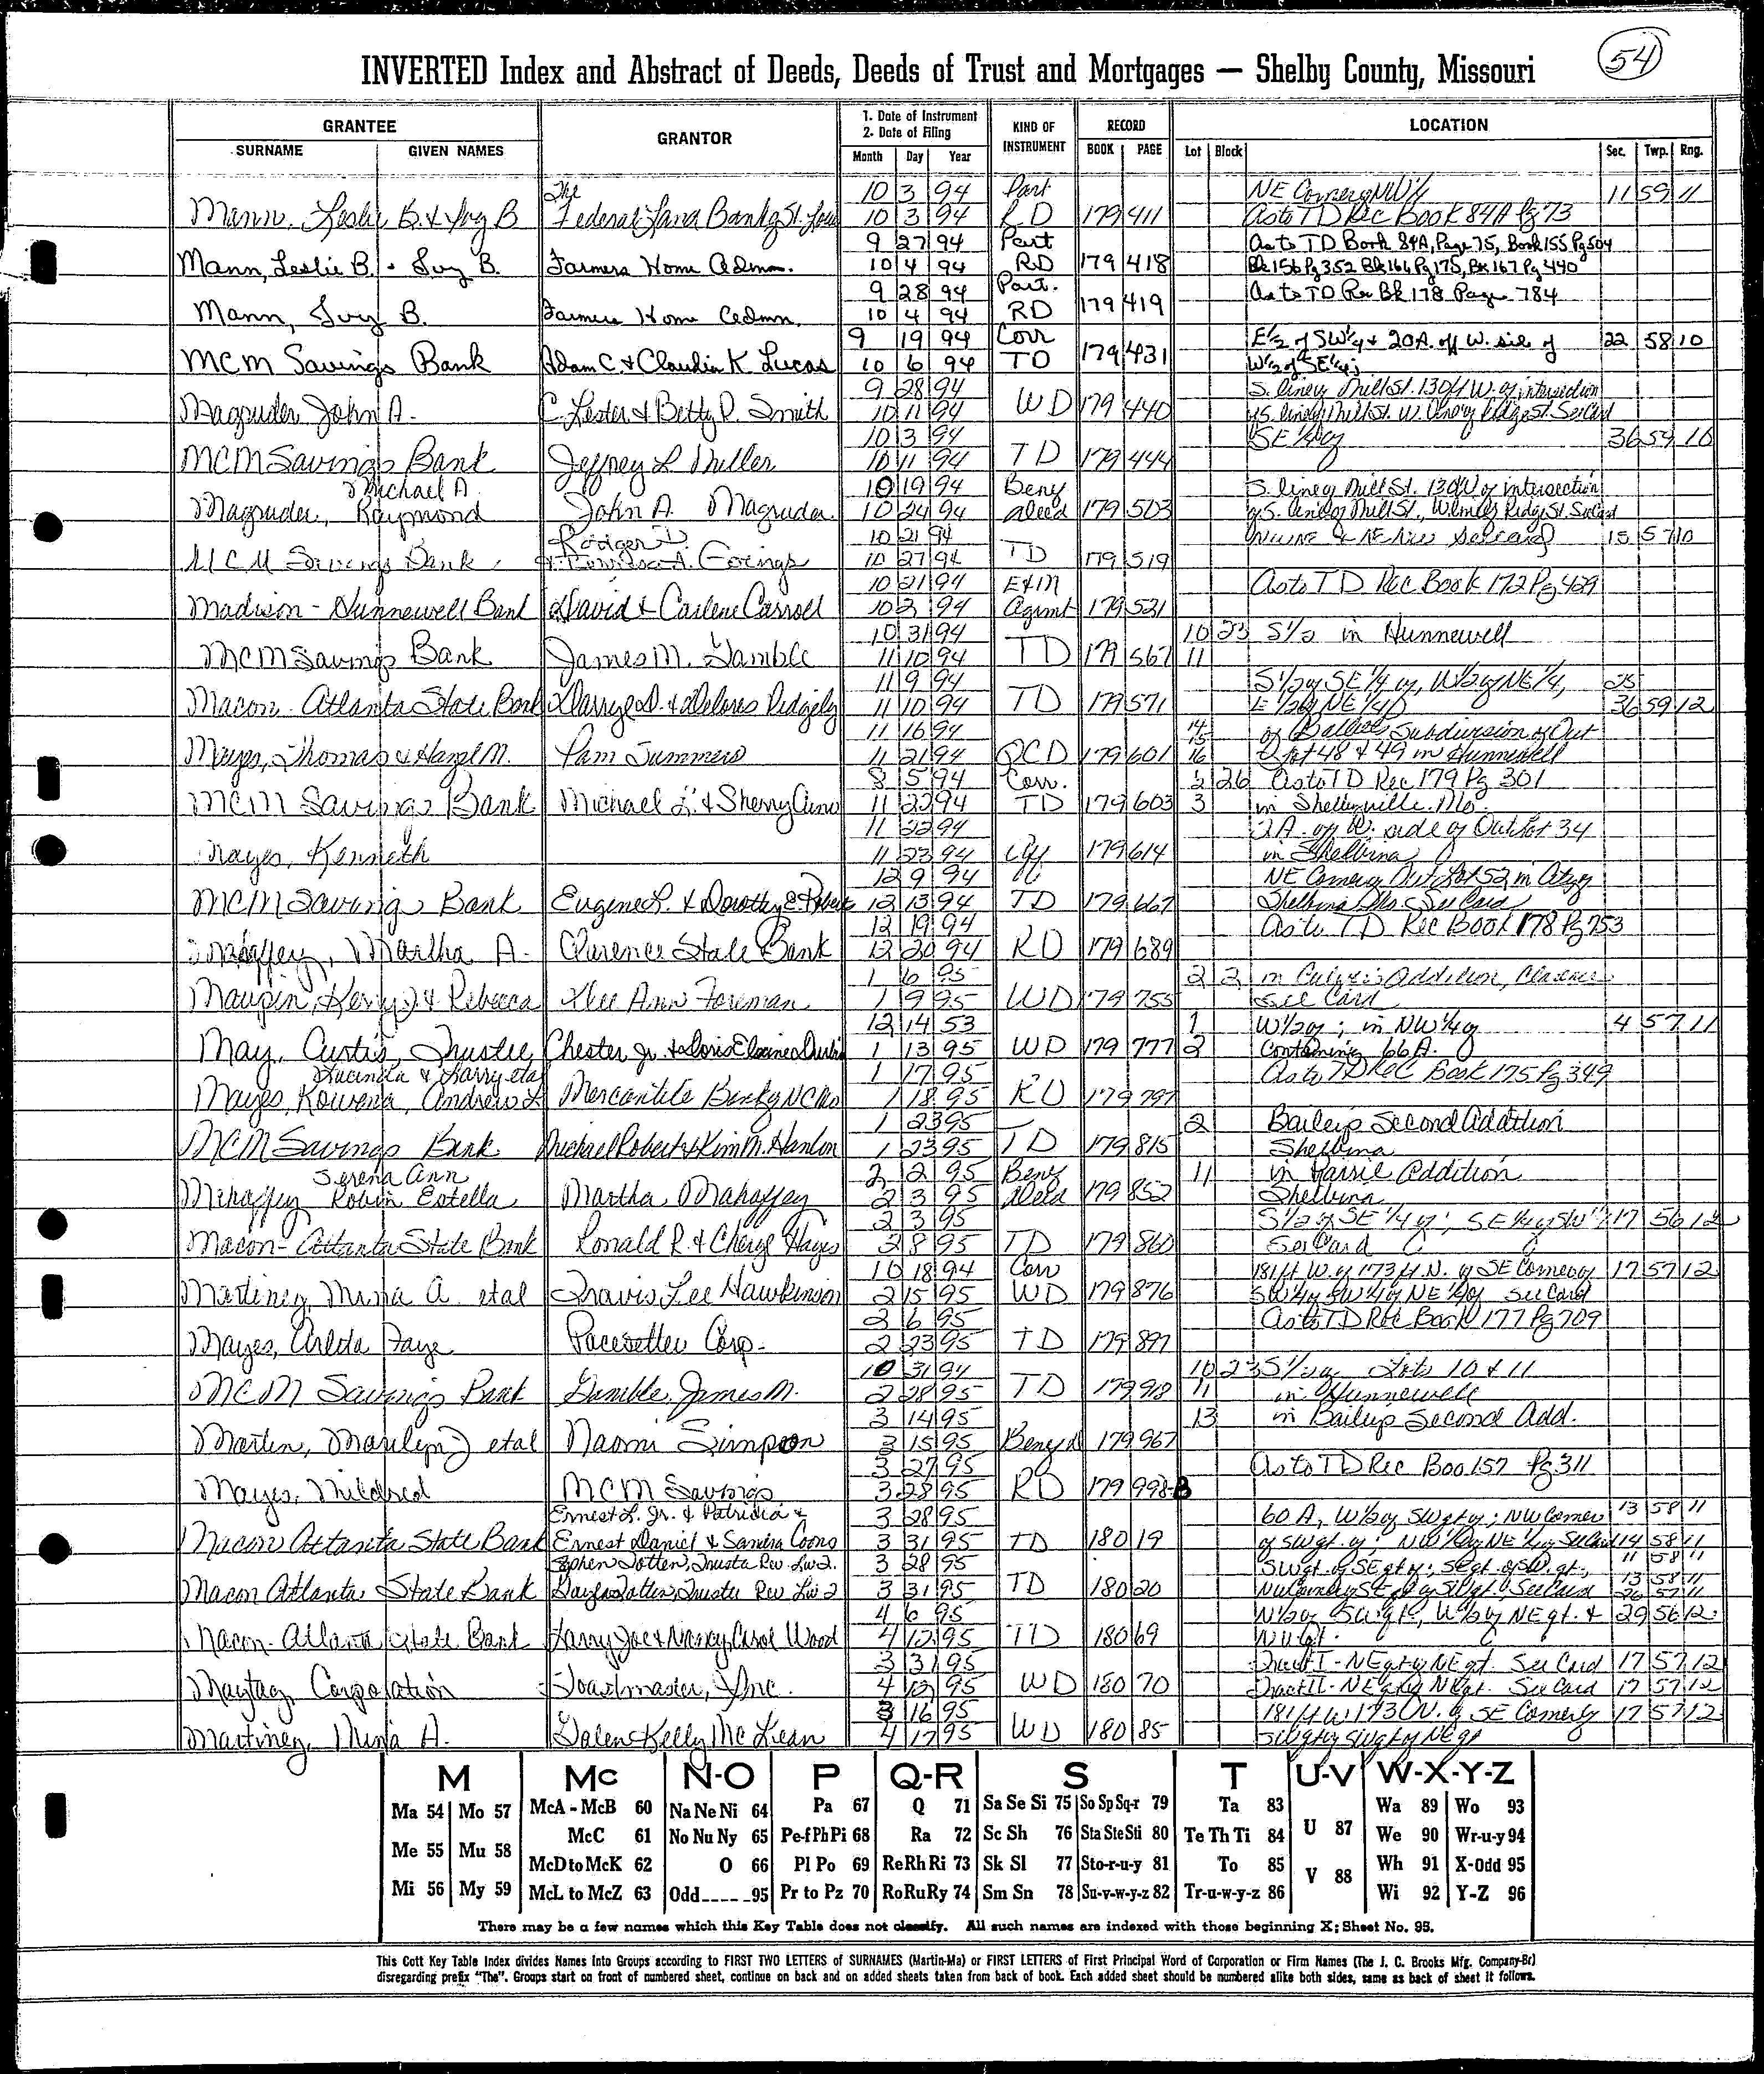 54
INVERTED Index and Abstract of Deeds, Deeds of Trust and Mortgages — Shelby County, Missouri
GRANTEE GRANTOR 1. Date of Instrument 2. Date of Filing KIND OF INSTRUMENT RECORD LOCATION
SURNAME GIVEN NAMES Month Day Year BOOK PAGE Lot Block Sec. Twp. Rng.
The 10 3 94 Part NE Corner of NW¼ 11 59 11
Mann, Leslie B. & Ivy B 10 3 94 RD 179 411 As to TD Rec Book 84A Pg 73
9 27 94 Part As to TD Book 84A, Page 75, Book 155 Pg 504
Mann, Leslie B. & Ivy B. Farmers Home Admn. 10 4 94 RD 179 418 Bk 156 Pg 352 Bk 166 Pg 175, Bk 167 Pg 440
9 28 94 Part. As to TD Rec Bk 178 Page 784
Mann, Ivy B. Farmers Home Admn. 10 4 94 RD 179 419
9 19 94 Corr E½ of SW¼ & 20A. off W. side of 22 58 10
MCM Savings Bank Adam C. & Claudia K. Lucas 10 6 94 TD 179 431 W½ of SE¼
9 28 94 S. line of Mill St. 130 ft W. of intersection
Magruder, John A. C. Lester & Betty D. Smith 10 11 94 WD 179 440 of S. line of Mill St. W. line of Ridge St. See Card
10 3 94 SE ¼ of 36
MCM Savings Bank Jeffrey L. Miller 10 11 94 TD 179 444
Michael A. 10 19 94 Beny S. line of Mill St. 130 ft W of intersection
Magruder, Raymond John A. Magruder 10 24 94 deed 179 503 of S. line of Mill St., W line of Ridge St. See Card
Rodger D. 10 21 94 15 57 10
MCM Savings Bank Goings 10 27 94 TD 179 519
10 21 94 Extn As to TD Rec Book 172 Pg 429
Madison-Hunnewell Bank David & Carlene Carroll 94 Agrmt 179 521
10 31 94 10 23 S½ in Hunnewell
MCM Savings Bank James M. Gamble 11 10 94 TD 179 567 11
11 9 94 S½ of SE ¼ of, W½ of NE¼, 25
Macon-Atlanta State Bank Darryl D. & Delores Ridgely 11 10 94 TD 179 571 E½ of NE ¼ 36 59 12
11 16 94 Subdivision of Out
Mayes, Thomas & Hazel M. Pam Summers 11 21 94 QCD 179 601 16 Lot 48 & 49 in Hunnewell
8 5 94 Corr. 2 26 As to TD Rec 179 Pg 301
MCM Savings Bank Michael L. & Sherry 11 22 94 TD 179 603 3 in Shelbyville, Mo.
11 22 94 2A. off W. side of Out Lot 34
Mayes, Kenneth 11 23 94 Aff 179 614 in Shelbina
12 9 94 NE Corner Out Lot 52 in City of
MCM Savings Bank Eugene L. & Dorothy E. 12 13 94 TD 179 667 Shelbina Mo. See Card
12 19 94 As to TD Rec Book 178 Pg 753
Mahaffey, Martha A. Clarence State Bank 12 20 94 RD 179 689
1 6 95 2 2 in Addition, Clarence
Maupin, Kerry J & Rebecca Ann Foreman 1 9 95 WD 179 755 See Card
12 14 53 1 W½ of; in NW ¼ of 4 57 11
May, Curtis, Trustee Chester Jr. & Doris Elaine 1 13 95 WD 179 777 2 containing 66 A.
Lucinda & Larry etal 1 17 95 As to TD Rec Book 175 Pg 349
Mayes, Rowena, Andrew L Mercantile Bank of NC Mo 1 18 95 RD 179 797
1 23 95 2 Bailey's Second Addition
MCM Savings Bank Michael Robert & Kim M. Hanlon 1 23 95 TD 179 815 Shelbina
Serena Ann 2 2 95 Beny 11 in Addition
Mahaffey Robin Estella Martha Mahaffey 2 3 95 deed 179 852 Shelbina
2 3 95 S½ of SE ¼ of; SE ¼ of SW ¼ 17 56 12
Macon-Atlanta State Bank Ronald R. & Cheryl Hayes 2 8 95 TD 179 860 See Card
10 18 94 Corr 181 ft W. of 173 ft N. of SE Corner of 17 57 12
Martinez, Minia A. etal Travis Lee Hawkinson 2 15 95 WD 179 876 SW ¼ of SW ¼ of NE ¼ of See Card
2 6 95 As to TD Rec Book 177 Pg 709
Mayes, Arleta Faye Pacesetter Corp. 2 23 95 TD 179 897
10 31 94 10 23 S½ of Lots 10 & 11
MCM Savings Bank Gamble, James M. 2 28 95 TD 179 918 11 in Hunnewell
3 14 95 13 in Bailey's Second Add.
Martin, Marilyn J etal Naomi Simpson 3 15 95 Beny d 179 967
3 27 95 As to TD Rec Boo 157 Pg 311
Mayes, Mildred MCM Savings 3 28 95 RD 179 998-B
Ernest L. Jr. & Patricia & 3 28 95 60 A, W½ of SW qt of; NW Corner 13 58 11
Macon Atlanta State Bank Ernest Daniel & Sandra Coons 3 31 95 TD 180 19 of SW qt. of; NW ¼ of NE ¼ of See Card 14 58 11
Stephen Totten, Trustee Rev. Liv. 3 28 95 SW qt. of SE qt of; SE qt. of SW. qt., 11 58 11
Macon Atlanta State Bank Totten, Trustee Rev Liv 3 31 95 TD 180 20 NW Corner of SE qt of SW qt. See Card 13 58 11 26 57 11
4 6 95 N½ of SW qt, W½ of NE qt. & 29 56 12
Macon-Atlanta State Bank Larry Joe & Nancy Carol Wood 4 12 95 TD 180 69 NW qt.
3 31 95 Tract I - NE qt of NE qt. See Card 17 57 12
Maytag Corporation Toastmaster, Inc. 4 95 WD 180 70 Tract II - NE qt of NE qt. See Card 17 57 12
3 16 95 181 ft W of SE Corner of 17 57 12
Martinez, Minia A. Galen Kelly McLean 4 17 95 WD 180 85 SW qt of SW qt of NE qt
M Mc N-O P Q-R S T U-V W-X-Y-Z
Ma 54 Mo 57 McA - McB 60 Na Ne Ni 64 Pa 67 Q 71 Sa Se Si 75 So Sp Sq-r 79 Ta 83 U 87 Wa 89 Wo 93
Me 55 Mu 58 McC 61 No Nu Ny 65 Pe-f Ph Pi 68 Ra 72 Sc Sh 76 Sta Ste Sti 80 Te Th Ti 84 We 90 Wr-u-y 94
McD to McK 62 O 66 Pl Po 69 Re Rh Ri 73 Sk Sl 77 Sto-r-u-y 81 To 85 V 88 Wh 91 X-Odd 95
Mi 56 My 59 McL to McZ 63 Odd 95 Pr to Pz 70 Ro Ru Ry 74 Sm Sn 78 Su-v-w-y-z 82 Tr-u-w-y-z 86 Wi 92 Y-Z 96
There may be a few names which this Key Table does not classify. All such names are indexed with those beginning X; Sheet No. 95.
This Cott Key Table Index divides Names into Groups according to FIRST TWO LETTERS of SURNAMES (Martin-Ma) or FIRST LETTERS of First Principal Word of Corporation or Firm Names (The J. C. Brooks Mfg. Company-Br)
disregarding prefix "The". Groups start on front of numbered sheet, continue on back and on added sheets taken from back of book. Each added sheet should be numbered alike both sides, same as back of sheet it follows.